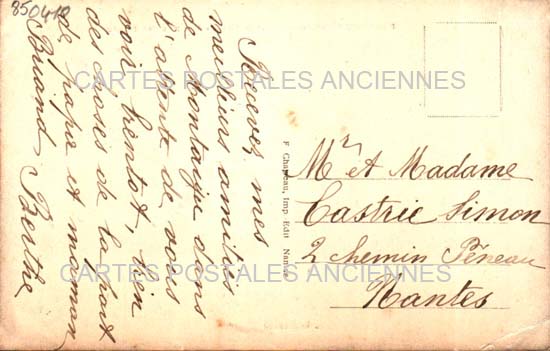 850410
Recevez mes
meilleurs amitiés
de Montaigu dans
l'attente de vous
voir bientot, bien
des choses de la part
de papa et maman
Briand Berthe
CARTES POSTALES ANCIENNES
F. Chapeau, Imp. Edit. Nantes
Mr et Madame
Castric Simon
2 chemin Péneau
Nantes
CARTES POSTALES ANCIENNES